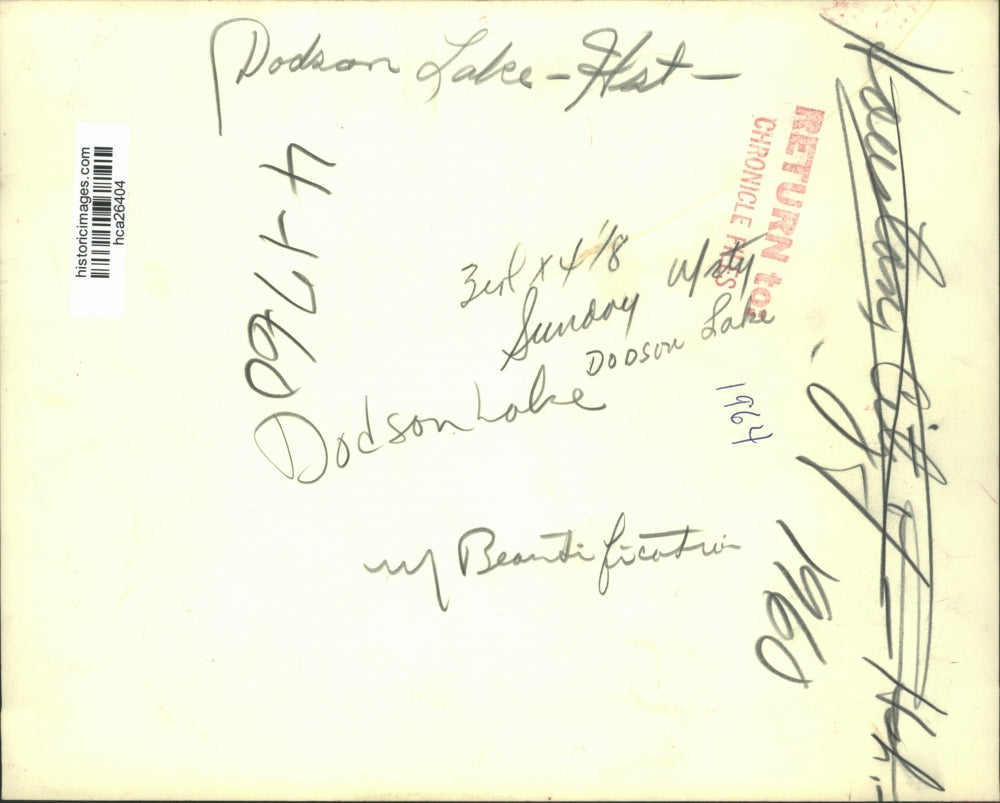 Dodson Lake - Hst -
historicimages.com
hca26404
4-17-60
RETURN to:
CHRONICLE FILES
3 col x 4 1/8
Sunday w/sty
Dodson Lake
DODSON Lake
1964
w/ Beautification
1960
Houston City